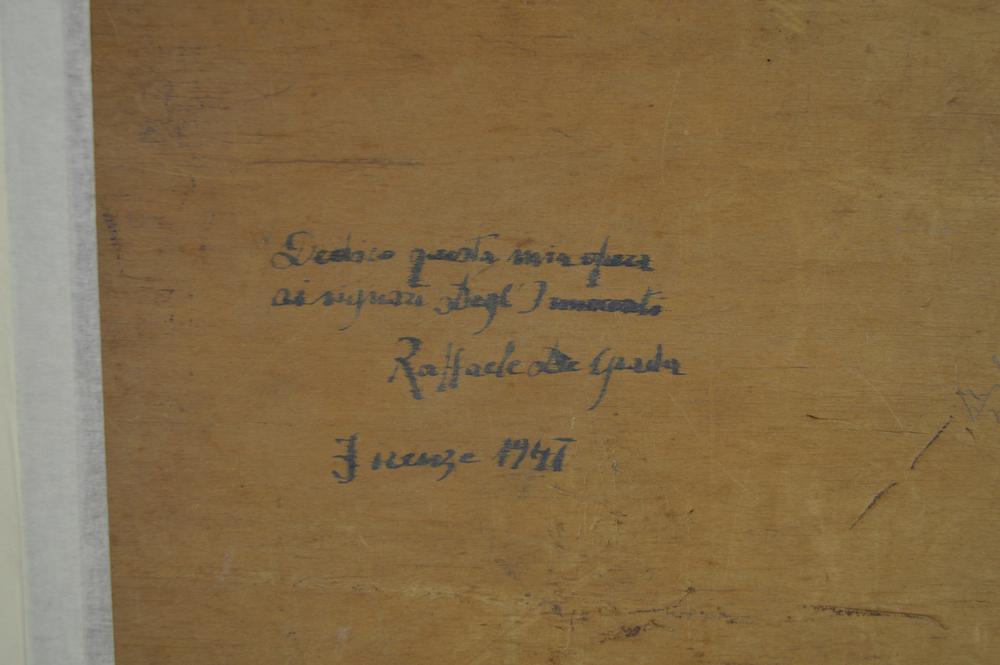 Dedico questa mia opera
ai signori Degl' Innocenti
Raffaele De Grada
Firenze 1941